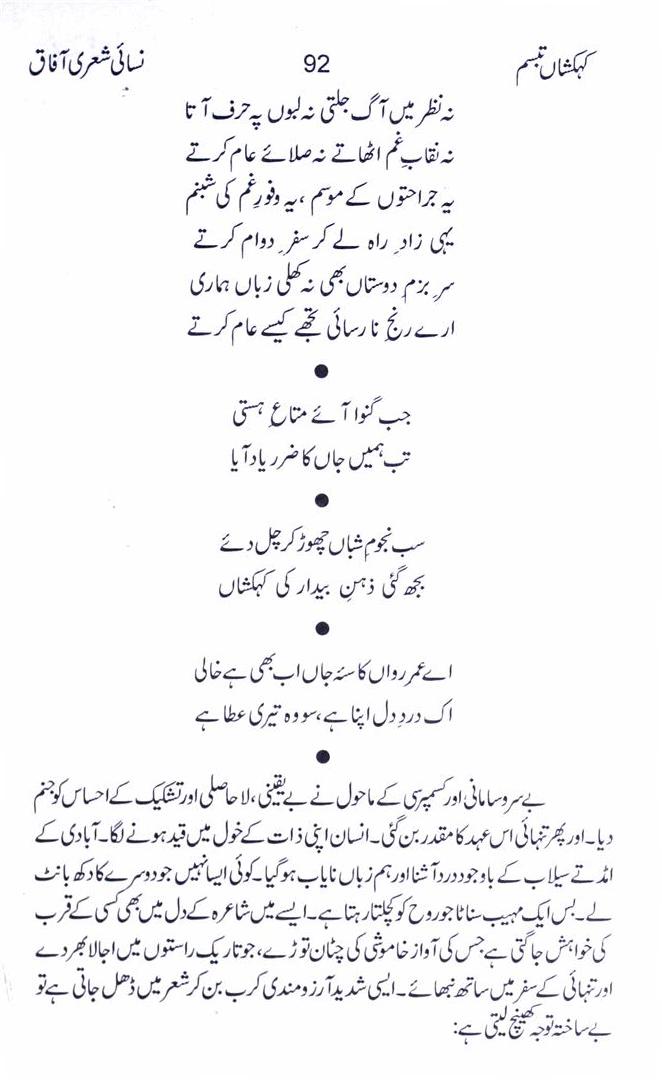 کہکشاں تبسم 92 نسائی شعری آفاق
نہ نظر میں آگ جلتی نہ لبوں پہ حرف آتا
نہ نقابِ غم اٹھاتے نہ صلائے عام کرتے
یہ جراحتوں کے موسم ،یہ وفورِ غم کی شبنم
یہی زادِ راہ لے کر سفرِ دوام کرتے
سرِ بزمِ دوستاں بھی نہ کھلی زباں ہماری
ارے رنجِ نارسائی تجھے کیسے عام کرتے
●
جب گنوا آئے متاعِ ہستی
تب ہمیں جاں کا ضرر یاد آیا
●
سب نجومِ شباں چھوڑ کر چل دئے
بجھ گئی ذہنِ بیدار کی کہکشاں
●
اے عمر رواں کاسئہ جاں اب بھی ہے خالی
اک دردِ دل اپنا ہے ،سو وہ تیری عطا ہے
●
بے سروسامانی اور کسمپرسی کے ماحول نے بے یقینی ،لاحاصلی اور تشکیک کے احساس کو جنم
دیا۔اور پھر تنہائی اس عہد کا مقدر بن گئی۔انسان اپنی ذات کے خول میں قید ہونے لگا۔آبادی کے
امڈتے سیلاب کے باوجود درد آشنا اور ہم زباں نایاب ہوگیا۔کوئی ایسا نہیں جو دوسرے کا دکھ بانٹ
لے۔بس ایک مہیب سناٹا جو روح کو کچلتا رہتا ہے۔ایسے میں شاعرہ کے دل میں بھی کسی کے قرب
کی خواہش جاگتی ہے جس کی آواز خاموشی کی چٹان توڑے ،جو تاریک راستوں میں اجالا بھر دے
اور تنہائی کے سفر میں ساتھ نبھائے۔ایسی شدید آرزومندی کرب بن کر شعر میں ڈھل جاتی ہے تو
بے ساختہ توجہ کھینچ لیتی ہے: